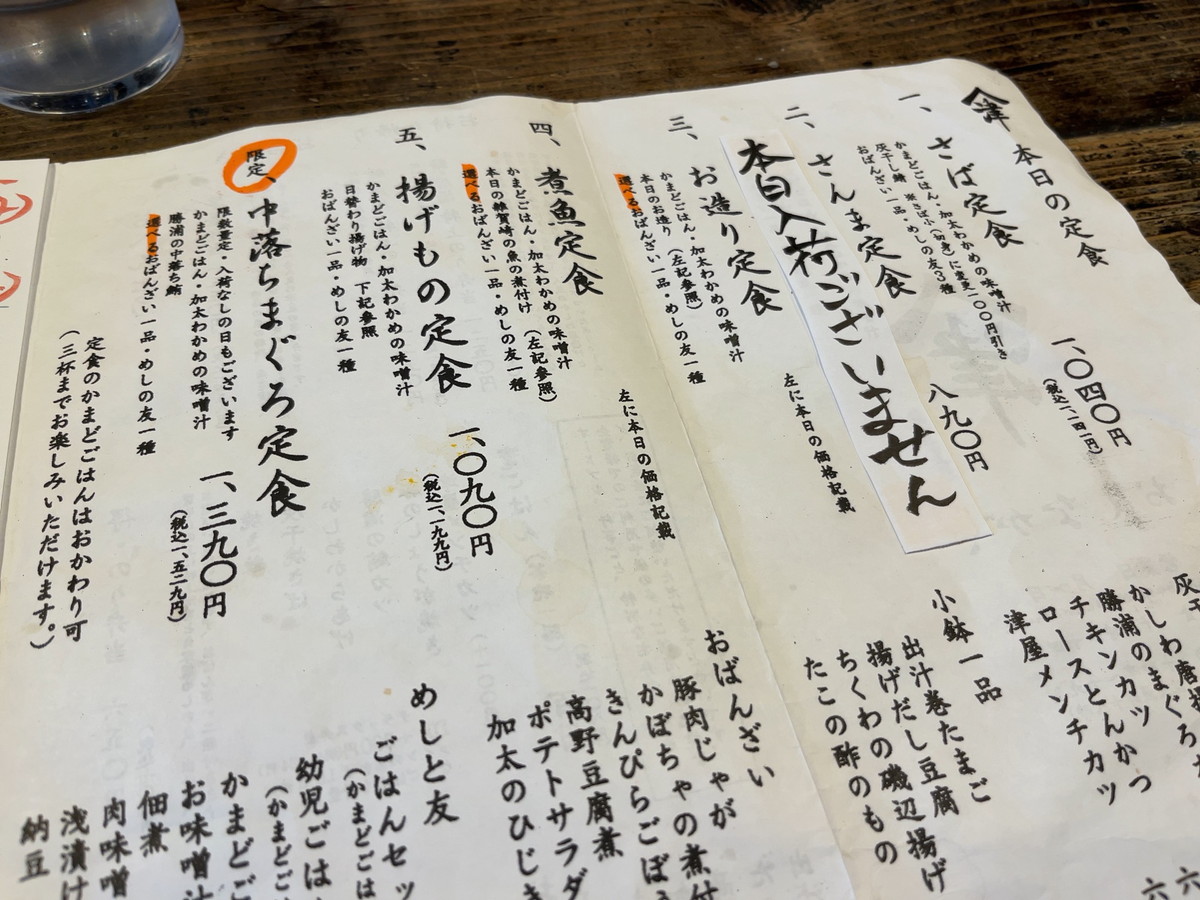 本日の定食
一、さば定食
かまどごはん・加太わかめの味噌汁
灰干し鯖 ※さば小(幼き)に変更一〇〇円引き
おばんざい一品・めしの友3種
一、〇四〇円
(税込一、一四一円)
二、さんま定食
八九〇円
本日入荷ございません
三、お造り定食
かまどごはん・加太わかめの味噌汁
本日のお造り (左記参照)
選べるおばんざい一品・めしの友一種
左に本日の価格記載
四、煮魚定食
かまどごはん・加太わかめの味噌汁
本日の雑賀崎の魚の煮付け (左記参照)
選べるおばんざい一品・めしの友一種
左に本日の価格記載
五、揚げもの定食
かまどごはん・加太わかめの味噌汁
日替わり揚げ物 下記参照
おばんざい一品・めしの友一種
一、〇九〇円
(税込一、一九九円)
限定、中落ちまぐろ定食
限数量定・入荷なしの日もございます
かまどごはん・加太わかめの味噌汁
勝浦の中落ち鮪
選べるおばんざい一品・めしの友一種
一、三九〇円
(税込一、五二九円)
定食のかまどごはんはおかわり可
(三杯までお楽しみいただけます。)
かしわ唐揚
勝浦のまぐろ
チキンカツ
ロースとんかつ
津屋メンチカツ
小鉢一品
出汁巻たまご
揚げだし豆腐
ちくわの磯辺揚げ
たこの酢のもの
おばんざい
豚肉じゃが
かぼちゃの煮付
きんぴらごぼう
高野豆腐煮
ポテトサラダ
加太のひじき
めしと友
ごはんセッ
(かまどごは
幼児ごはん
(かまどご
かまどご
お味噌汁
佃煮
肉味噌
浅漬け
納豆